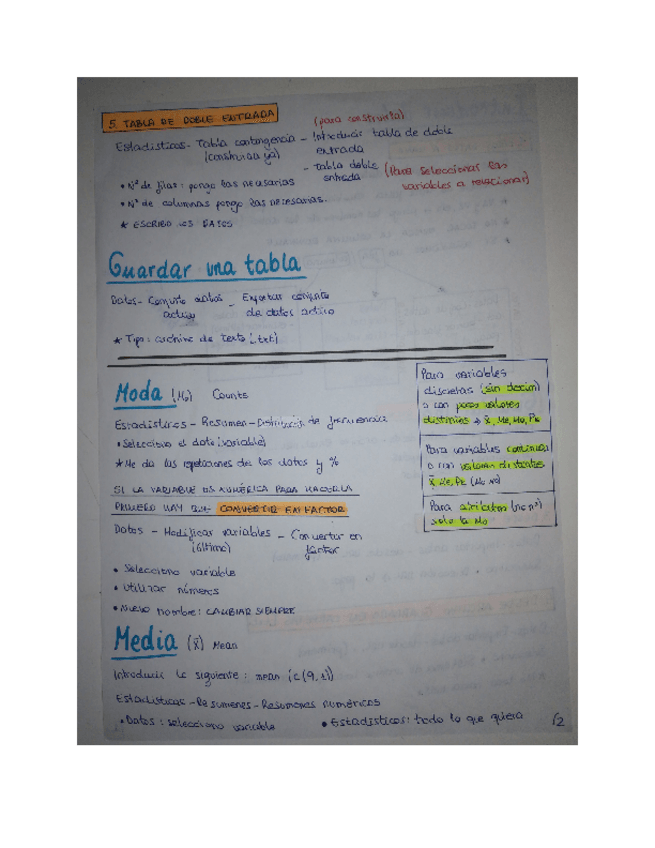 5. TABLA DE DOBLE ENTRADA
(para construirla)
Estadísticos - Tabla contingencia - Introducir tabla de doble
(construida ya) entrada
- tabla doble (Para seleccionar las
entrada variables a relacionar)
• Nº de filas: pongo las necesarias
• Nº de columnas pongo las necesarias.
★ ESCRIBO LOS DATOS
Guardar una tabla
Datos - Conjunto datos - Exportar conjunto
activo de datos activo
★ Tipo: archivo de texto (.txt)
Moda (Mo) Counts
Estadísticos - Resumen - Distribución de frecuencia
• Selecciono el dato (variable)
★ Me da las repeticiones de los datos y %
SI LA VARIABLE ES NUMÉRICA PARA HACERLA
PRIMERO HAY QUE CONVERTIR EN FACTOR
Datos - Modificar variables - Convertir en
(último) factor
• Selecciono variable
• Utilizar números
• Nuevo nombre: CAMBIAR SIEMPRE
Para variables
discretas (sin decim)
o con pocos valores
distintos → x̄, Me, Mo, Pk
Para variables continuas
o con valores distantes
x̄, Me, Pk (Mo no)
Para atributos (no nº)
solo la Mo
Media (x̄) Mean
Introducir lo siguiente: mean (c(9,1))
Estadísticos - Resúmenes - Resúmenes numéricos
• Datos: selecciono variable • Estadísticos: todo lo que quiera